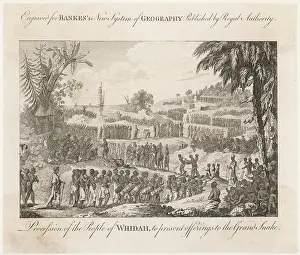 Engraved for BANKES's New System of GEOGRAPHY Published by Royal Authority.
Procession of the People of WHIDAH, to present offerings to the Grand Snake.